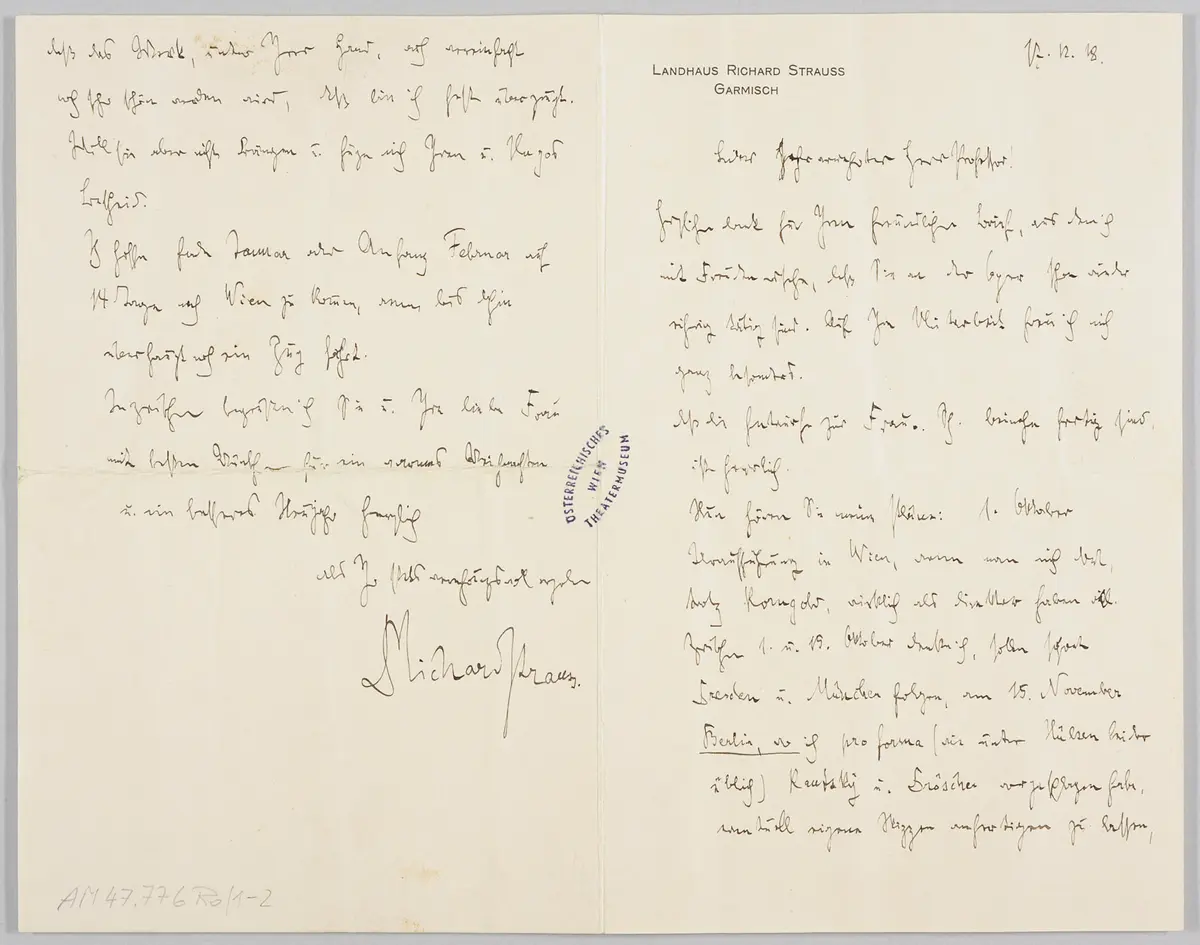 17. 12. 18.
LANDHAUS RICHARD STRAUSS
GARMISCH
Lieber hochverehrter Herr Professor!
Herzlichen Dank für Ihren freundlichen Brief, aus dem ich
mit Freuden ersehe, daß Sie an der Oper schon wieder
richtig tätig sind. Auf Ihre Mitarbeit freue ich mich
ganz besonders.
Daß die Entwürfe zur Frau o. Sch. beinahe fertig sind,
ist herrlich.
Nun hören Sie meine Pläne: 1. Oktober
Uraufführung in Wien, wenn man mich dort,
trotz Korngold, wirklich als Direktor haben will.
Zwischen 1. u. 15. Oktober denke ich, sollen
Dresden u. München folgen, am 15. November
Berlin, wo ich pro forma (wie unter Hülsen leider
üblich) Kautsky u. Brösche vorgeschlagen habe,
eventuell eigene Skizzen anfertigen zu lassen,
daß das Werk, unter Ihrer Hand, auch vereinfacht
noch sehr schön werden wird, deß bin ich fest überzeugt.
Will Sie aber nicht drängen u. füge mich Ihrem u. Hugos
Bescheid.
Ich hoffe Ende Januar oder Anfang Februar auf
14 Tage nach Wien zu kommen, wenn bis dahin
überhaupt noch ein Zug fährt.
Inzwischen begrüße ich Sie u. Ihre liebe Frau
mit besten Wünschen für ein warmes Weihnachten
u. ein besseres Neujahr herzlich
als Ihr stets verehrungsvoll ergebener
Richard Strauss.
ÖSTERREICHISCHES
WIEN
THEATERMUSEUM
AM 47.776 Ro/1-2